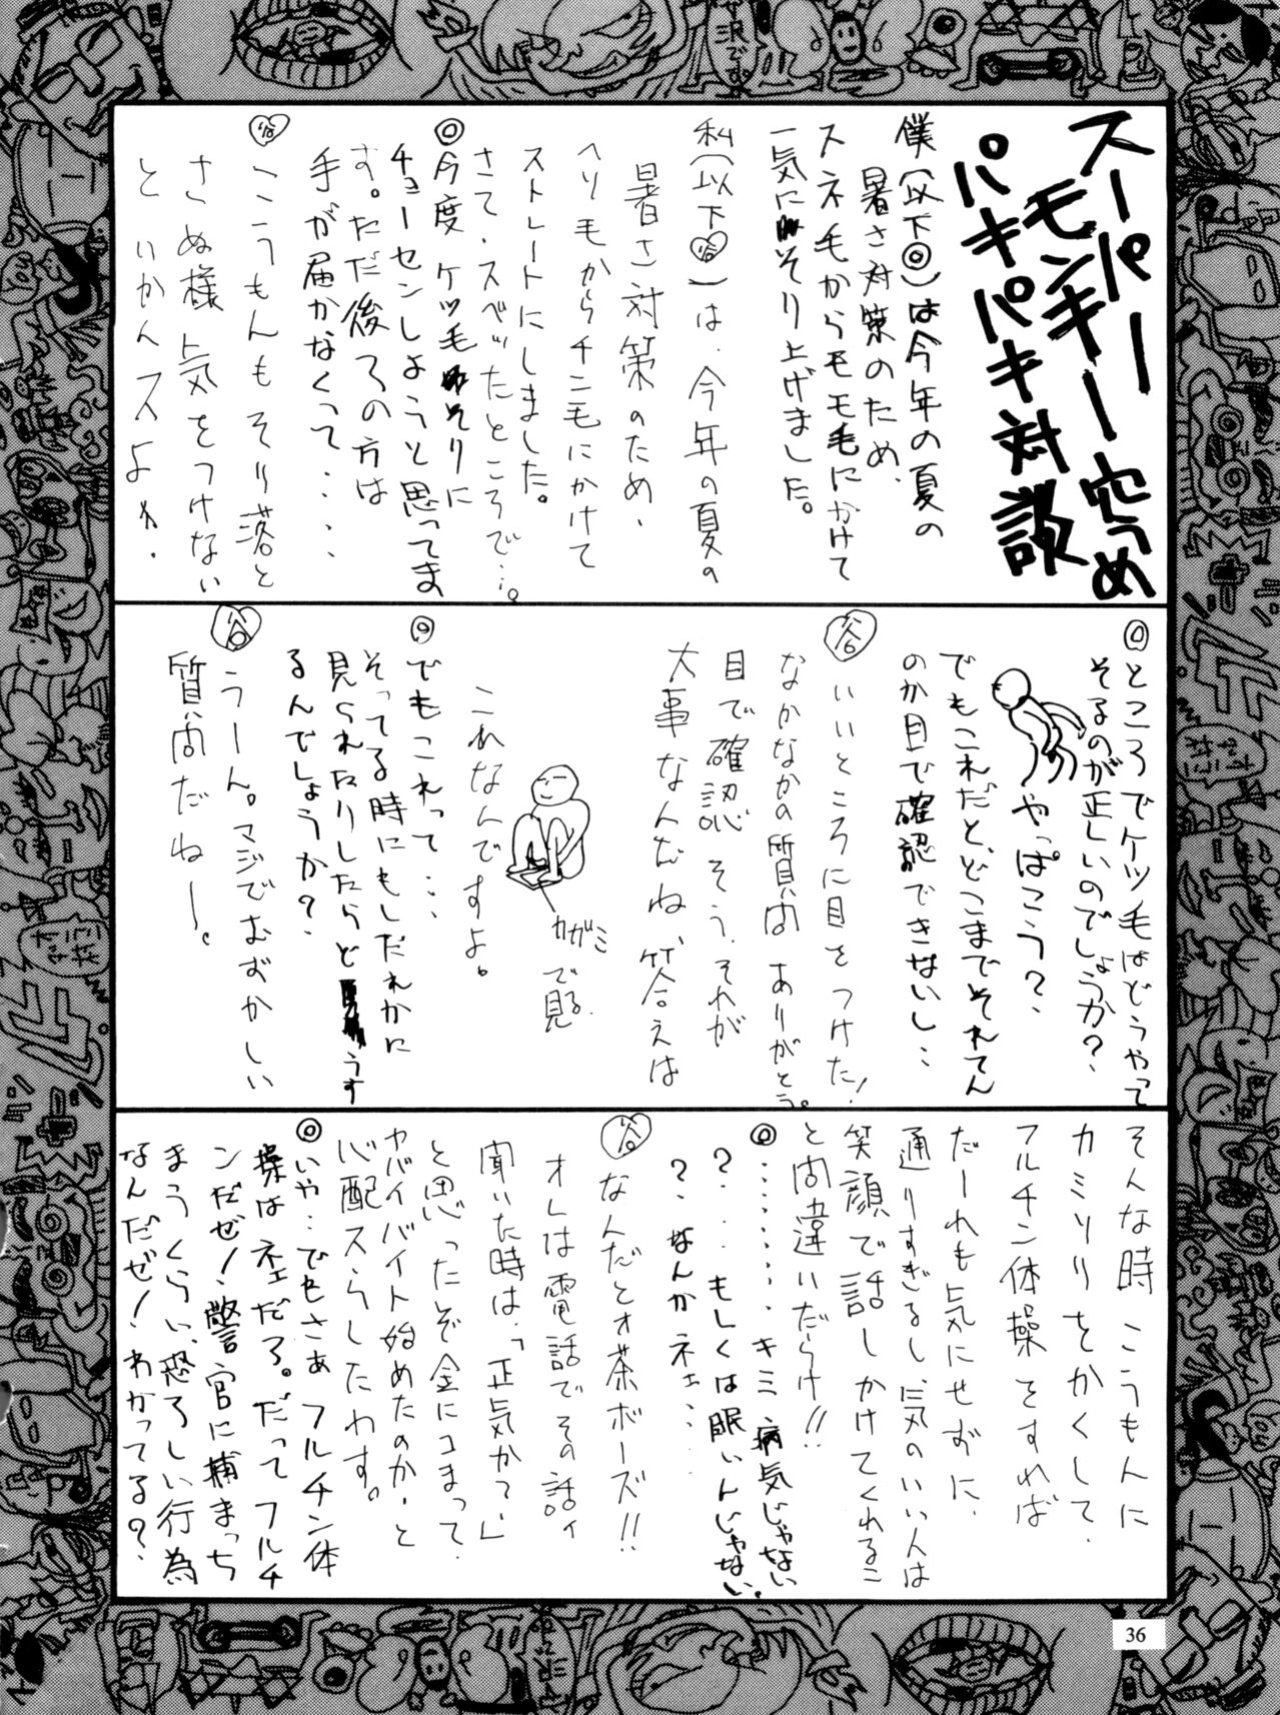 スーパー
モンキー穴うめ
パキパキ対談
僕(以下◎)は今年の夏の
暑さ対策のため、
スネ毛からモモ毛にかけて
一気にそり上げました。
私(以下谷)は、今年の夏の
暑さ対策のため、
ヘソ毛からチン毛にかけて
ストレートにしました。
さて、スベッたところで…。
◎今度ケツ毛そりに
チョーセンしようと思ってま
す。ただ後ろの方は
手が届かなくって・・・・
谷 こうもんもそり落と
さぬ様気をつけない
といかんスよね。
◎ところでケツ毛はどうやって
そるのが正しいのでしょうか?
やっぱこう?、
でもこれだと、どこまでそれてん
のか目で確認できないし…
谷 いいところに目をつけた!
なかなかの質問ありがとう。
目で確認そう、それが
大事なんだね、答えは
これなんですよ。
カガミ
で見る。
◎でもこれって…
そってる時にもしだれかに
見られたりしたらどうす
るんでしょうか?
谷 うーん。マジでむずかしい
質問だねー。
そんな時こうもんに
カミソリをかくして、
フルチン体操をすれば
だーれも気にせずに、
通りすぎるし、気のいい人は
笑顔で話しかけてくれるこ
と間違いだらけ!!
◎・・・・・・・キミ病気じゃない
?・・もしくは眠いんじゃない
?、なんかネェ…
谷 なんだとォ茶ボーズ!!
オレは電話でその話ィ
聞いた時は、「正気かて」
と思ったぞ金にコまって
ヤバイバイト始めたのか・と
心配スらしたわす。
◎いや…でもさぁフルチン体
操はネェだろ。だってフルチ
ンだぜ!警官に捕まっち
まうくらい、恐ろしい行為
なんだぜ!わかってる?、
36